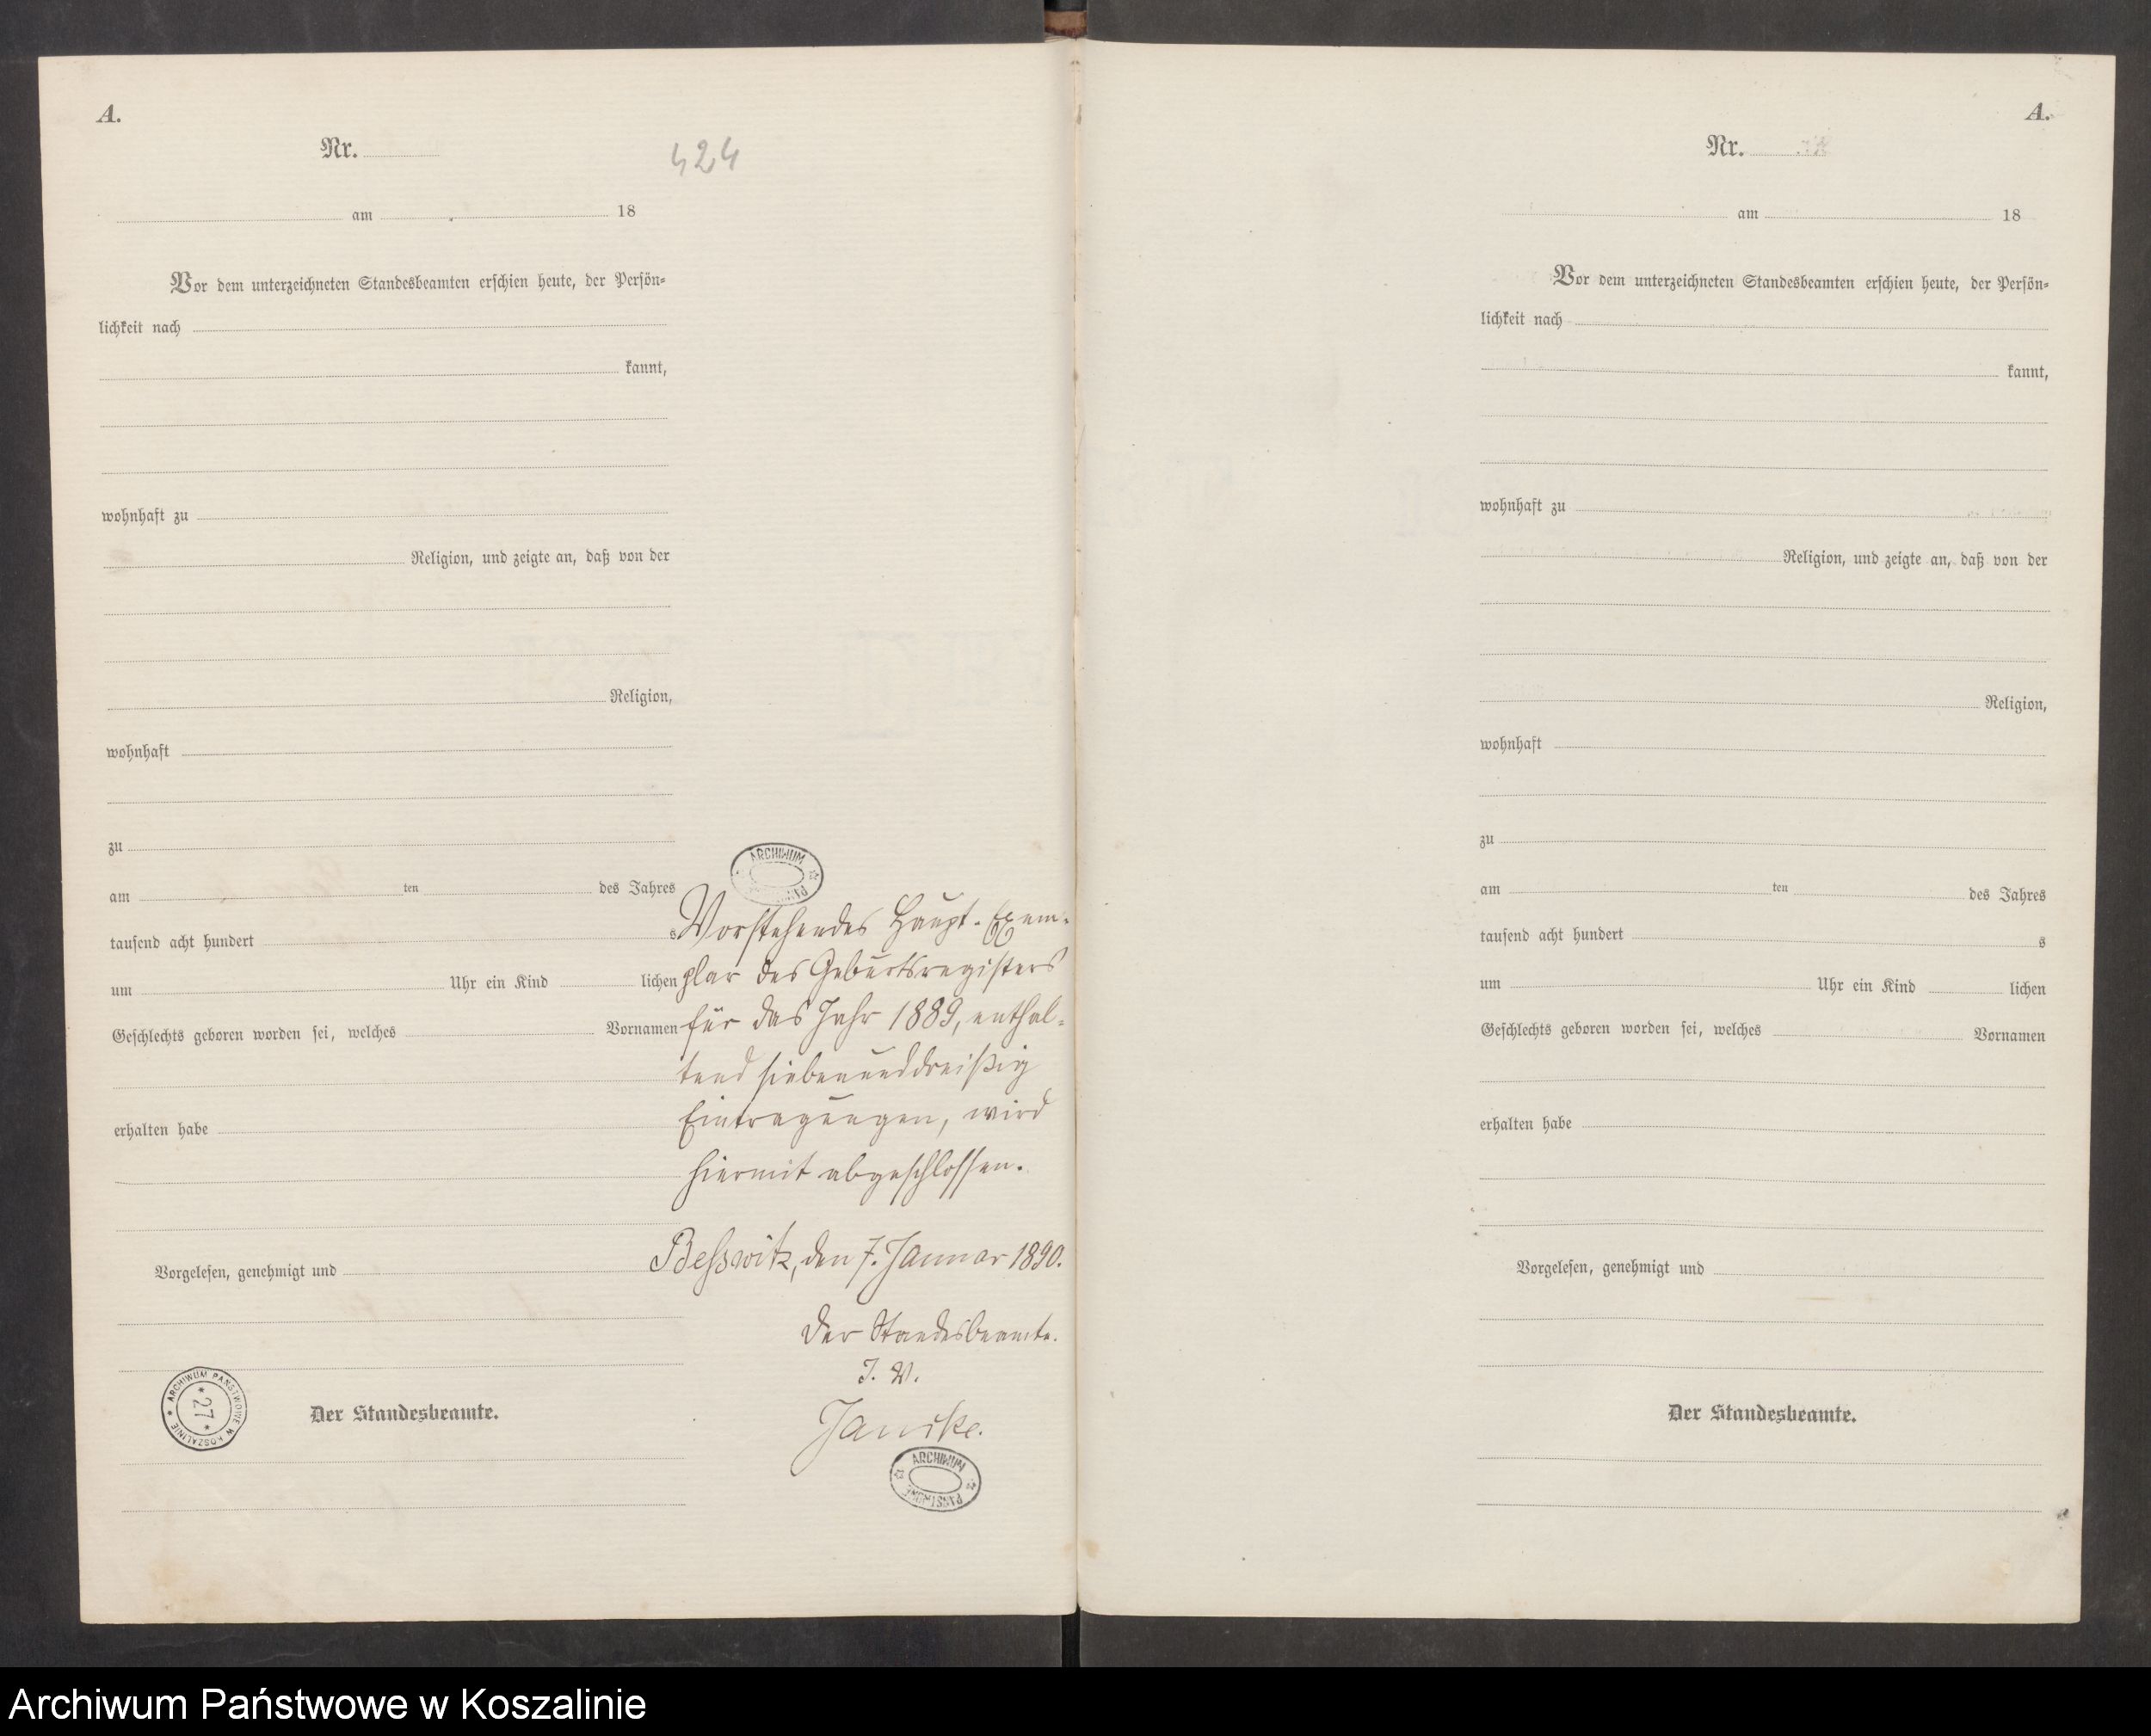 A.
Nr.
424
am 18
Vor dem unterzeichneten Standesbeamten erschien heute, der Persön-
lichkeit nach
kannt,
wohnhaft zu
Religion, und zeigte an, daß von der
Religion,
wohnhaft
zu
am ten des Jahres
tausend acht hundert s
um Uhr ein Kind lichen
Geschlechts geboren worden sei, welches Vornamen
erhalten habe
Vorgelesen, genehmigt und
Der Standesbeamte.
ARCHIWUM PAŃSTWOWE W KOSZALINIE
* 27 *
ARCHIWUM
Vorstehendes Haupt-Exem-
plar des Geburtsregisters
für das Jahr 1889, enthal-
tend siebenunddreißig
Eintragungen, wird
hiermit abgeschlossen.
Besswitz, den 7. Januar 1890.
Der Standesbeamte.
I. V.
ARCHIWUM
PAŃSTWOWE
A.
Nr.
am 18
Vor dem unterzeichneten Standesbeamten erschien heute, der Persön-
lichkeit nach
kannt,
wohnhaft zu
Religion, und zeigte an, daß von der
Religion,
wohnhaft
zu
am ten des Jahres
tausend acht hundert s
um Uhr ein Kind lichen
Geschlechts geboren worden sei, welches Vornamen
erhalten habe
Vorgelesen, genehmigt und
Der Standesbeamte.
Archiwum Państwowe w Koszalinie